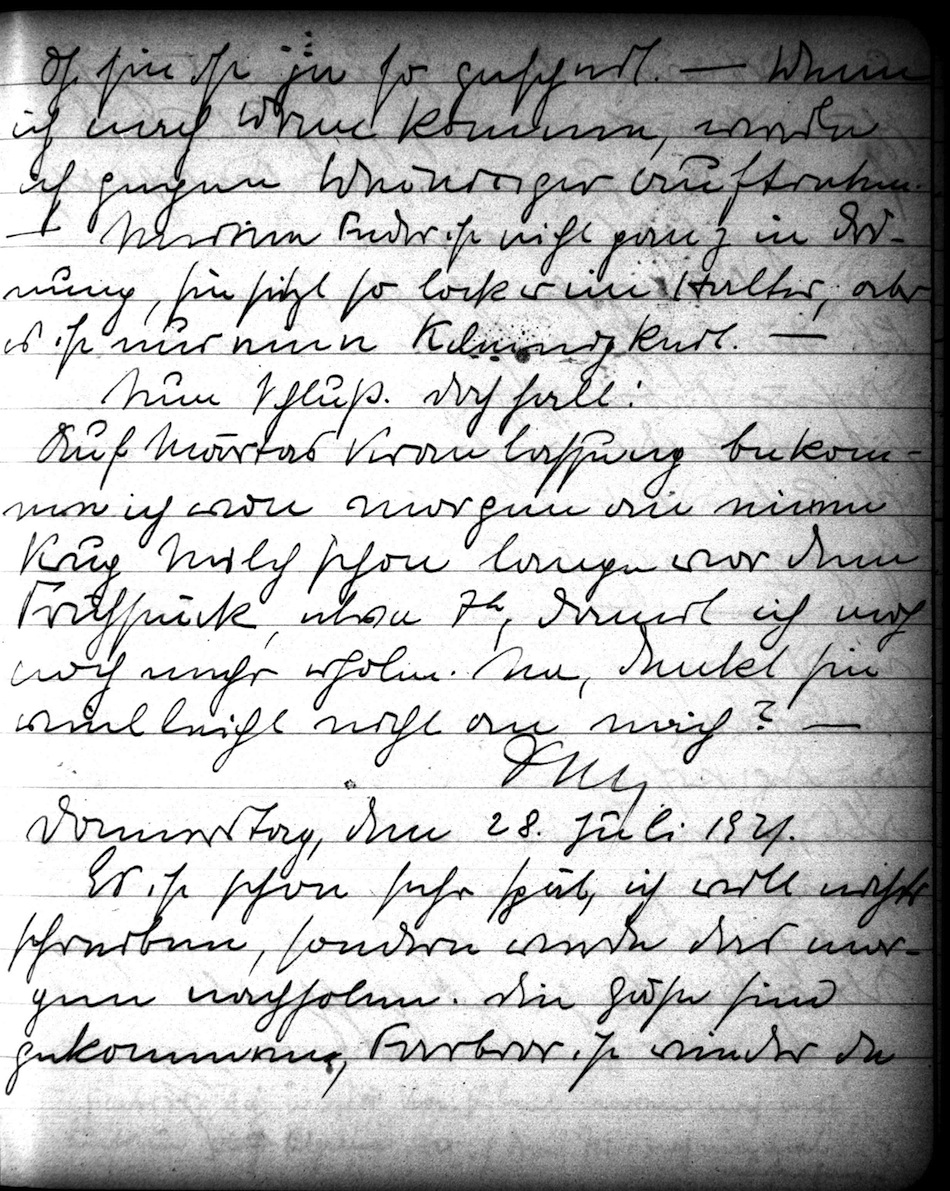 Oh sie ist ja so gescheit. — Wenn
ich nach Wien komme, werde
ich gegen auftreten.
— Meine Feder ist nicht ganz in Ord-
nung, sie sitzt so locker im Halter, aber
es ist nur eine Kleinigkeit. —
Nun Schluß. Doch halt!
Auf Martas Veranlassung bekom-
me ich von morgen an einen
Krug Milch schon lange vor dem
Frühstück, etwa 7h, damit ich mich
noch mehr erhole. Na, denkt sie
vielleicht nicht an mich? —
Donnerstag, den 28. Juli 1921.
Es ist schon sehr spät, ich will nichts
schreiben, sondern werde das mor-
gen nachholen. Die Gäste sind
gekommen, ist wieder da